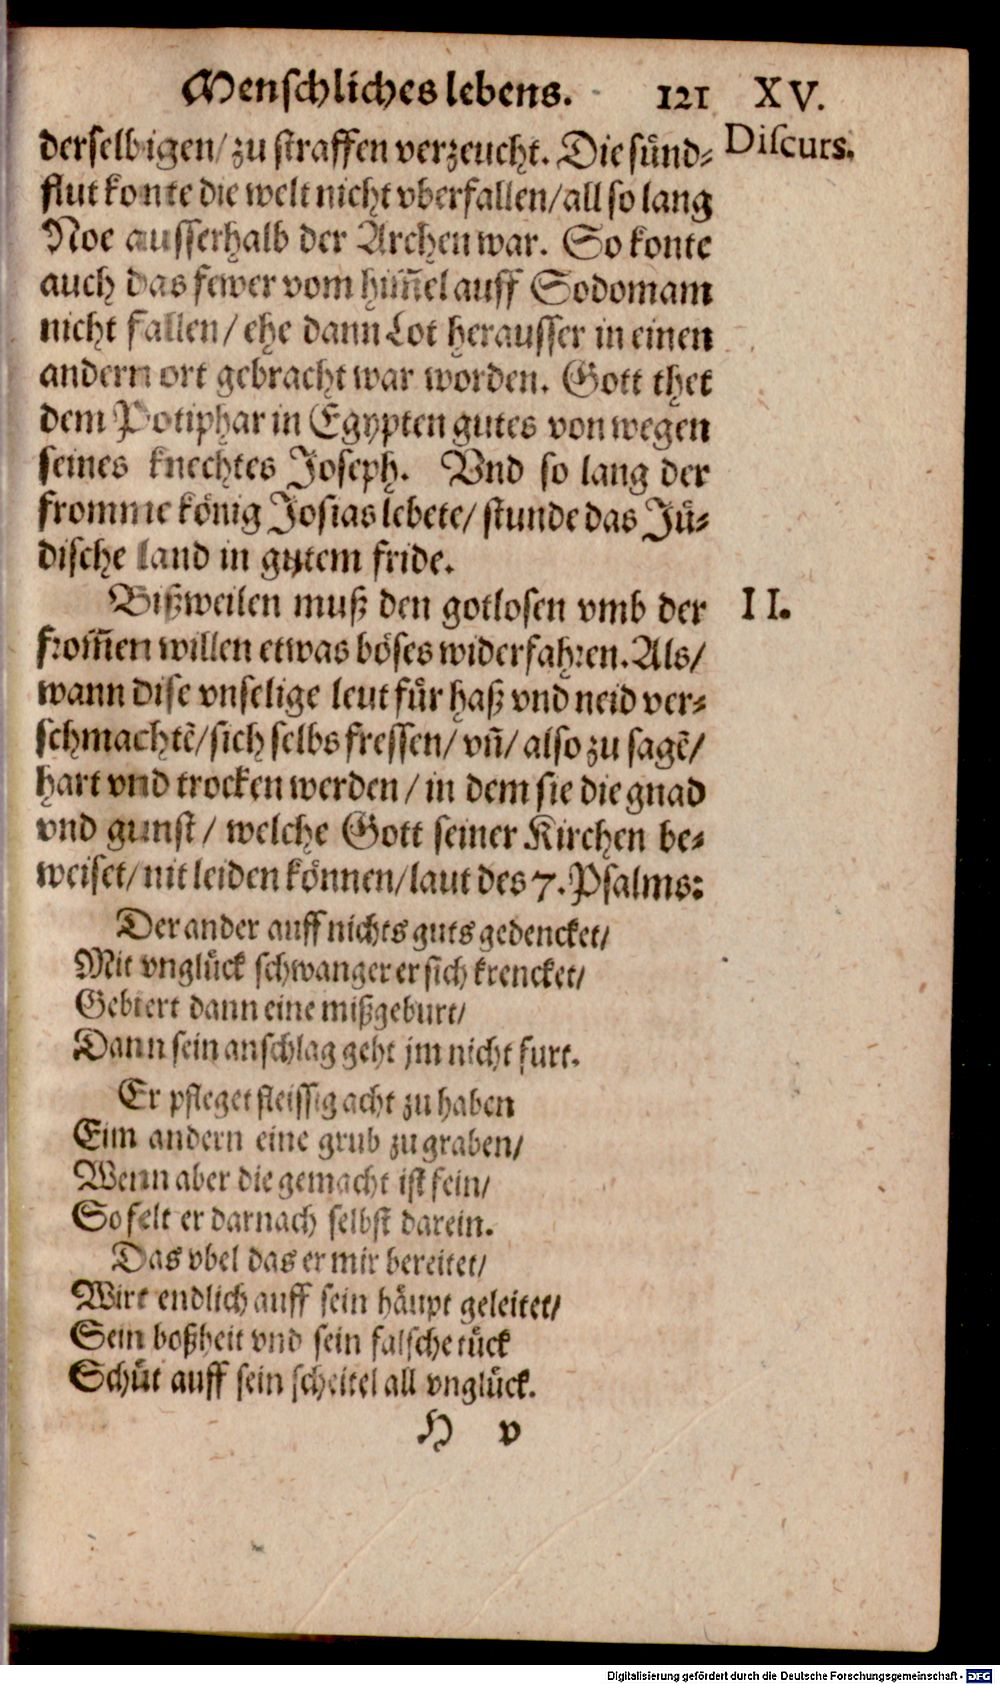 Menschliches lebens. 121 XV.
derselbigen/ zu straffen verzeucht. Die sünd- Discurs.
flut konte die welt nicht vberfallen/ all so lang
Noe ausserhalb der Archen war. So konte
auch das fewer vom him̃el auff Sodomam
nicht fallen/ ehe dann Lot herausser in einen
andern ort gebracht war worden. Gott thet
dem Potiphar in Egypten gutes von wegen
seines knechtes Joseph. Vnd so lang der
fromme könig Josias lebete/ stunde das Jü-
dische land in gutem fride.
Bißweilen muß den gotlosen vmb der II.
from̃en willen etwas böses widerfahren. Als/
wann dise vnselige leut für haß vnd neid ver-
schmachtẽ/ sich selbs fressen/ vñ/ also zu sagẽ/
hart vnd trocken werden/ in dem sie die gnad
vnd gunst/ welche Gott seiner Kirchen be-
weiset/ nit leiden können/ laut des 7. Psalms:
Der ander auff nichts guts gedencket/
Mit vnglück schwanger er sich krencket/
Gebiert dann eine mißgeburt/
Dann sein anschlag geht jm nicht furt.
Er pfleget fleissig acht zu haben
Eim andern eine grub zu graben/
Wenn aber die gemacht ist fein/
So felt er darnach selbst darein.
Das vbel das er mir bereitet/
Wirt endlich auff sein häupt geleitet/
Sein boßheit vnd sein falsche tück
Schüt auff sein scheitel all vnglück.
H v
Digitalisierung gefördert durch die Deutsche Forschungsgemeinschaft - DFG